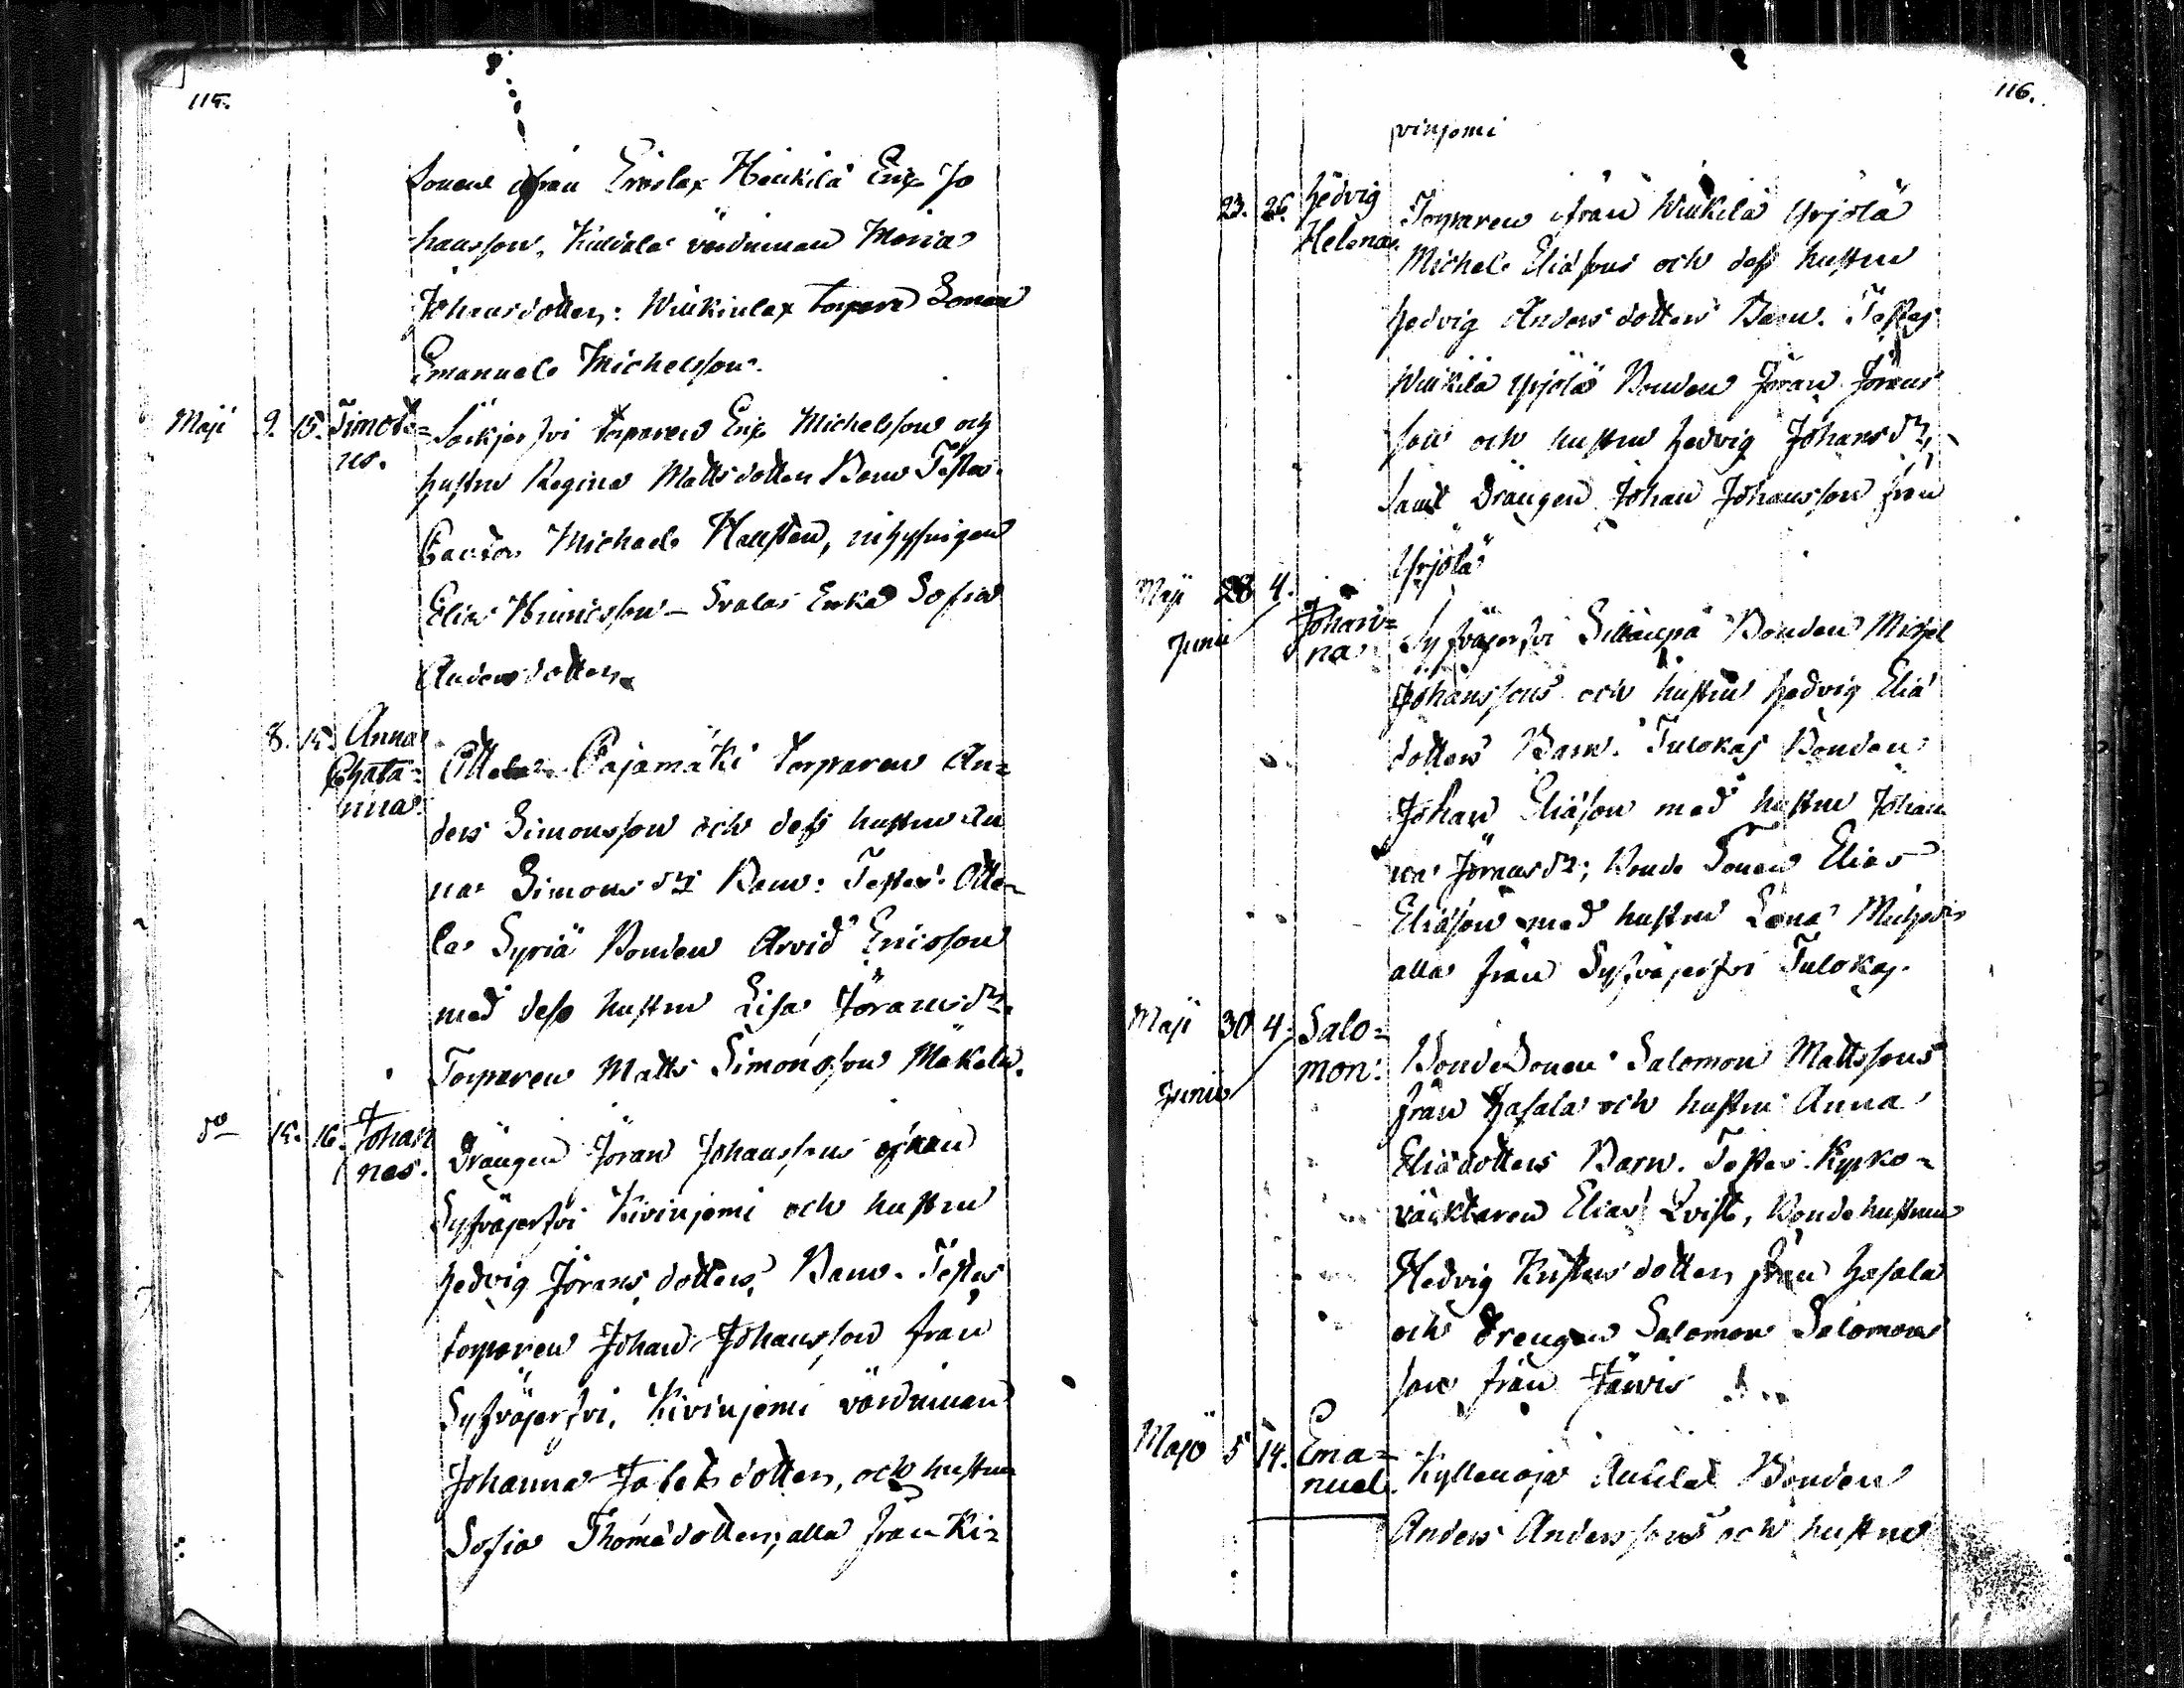 115.
Sonens ifrån Erislax Heikilä Eric Jo
hansson, Kuldala värdinnan Maria
Johansdotter: Wiikinlax torpare Sonen
Emanuel Michelsson.
Maji 9. 15. Timote=
us.
torparen Eric Michelsson och
hustru Regina Mattsdotters Barn Testes.
Michael Hallsten, inhysingen
Elias Hinricsson – Enka Sofia
Andersdotter.
8. 15. Anna
Chata=
rina.
Ottela Pajamäki torparen An=
ders Simonsson och dess hustru An
na Simonsdr Barn: Testes: Otte=
la Syriä Bonden Arvid Ericsson
med dess hustru Lisa Jöransdr.
Torparen Matts Simonsson Mäkelä.
do 15. 16. Johan
nes.
Drängen Jöran Johanssons ifrån
Syfväjerfvi Kivinjemi och hustru
Hedvig Jöransdotters Barn. Testes
torparen Johan Johansson från
Syfväjerfvi, Kivinjemi värdinnan
Johanna Jakobsdotter, och hustru
Sofia Thomädotter; alla från Ki=
116.
vinjemi
23. 26. Hedvig
Helena.
Torparen ifrån Wiikilä Yrjölä
Michel Eliæsons och dess hustru
Hedvig Andersdotters Barn. Testes
Wiikilä Yrjölä Bonden Jöran Jörans
son och hustru Hedvig Johansdr,
samt Drängen Johan Johansson från
Yrjölä
Maji 28 4.
Junii
Johan=
na
Syfväjerfvi Sillänpä Bonden Michel
Johanssons och hustru Hedvig Eliæ
dotters Barn. Tulokas Bonden
Johan Eliæson med hustru Johan
na Jöransdr; Bonde Sonen Elias
Eliæson med hustru Lena
alla från Syfväjerfvi Tulokas.
Maji 30 4.
Junii
Salo=
mon.
Bonde Sonen Salomon Mattssons
från Hasala och hustru Anna
Eliædotters Barn. Testes. Kyrko=
väcktaren Elias Qvist, Bondehustrun
Hedvig dotter från Hasala
och drengen Salomon Salomons
son från Järvis
Maji 5 14. Ema=
nuel.
Kyllenoja Anttila Bonden
Anders Anderssons och hustru